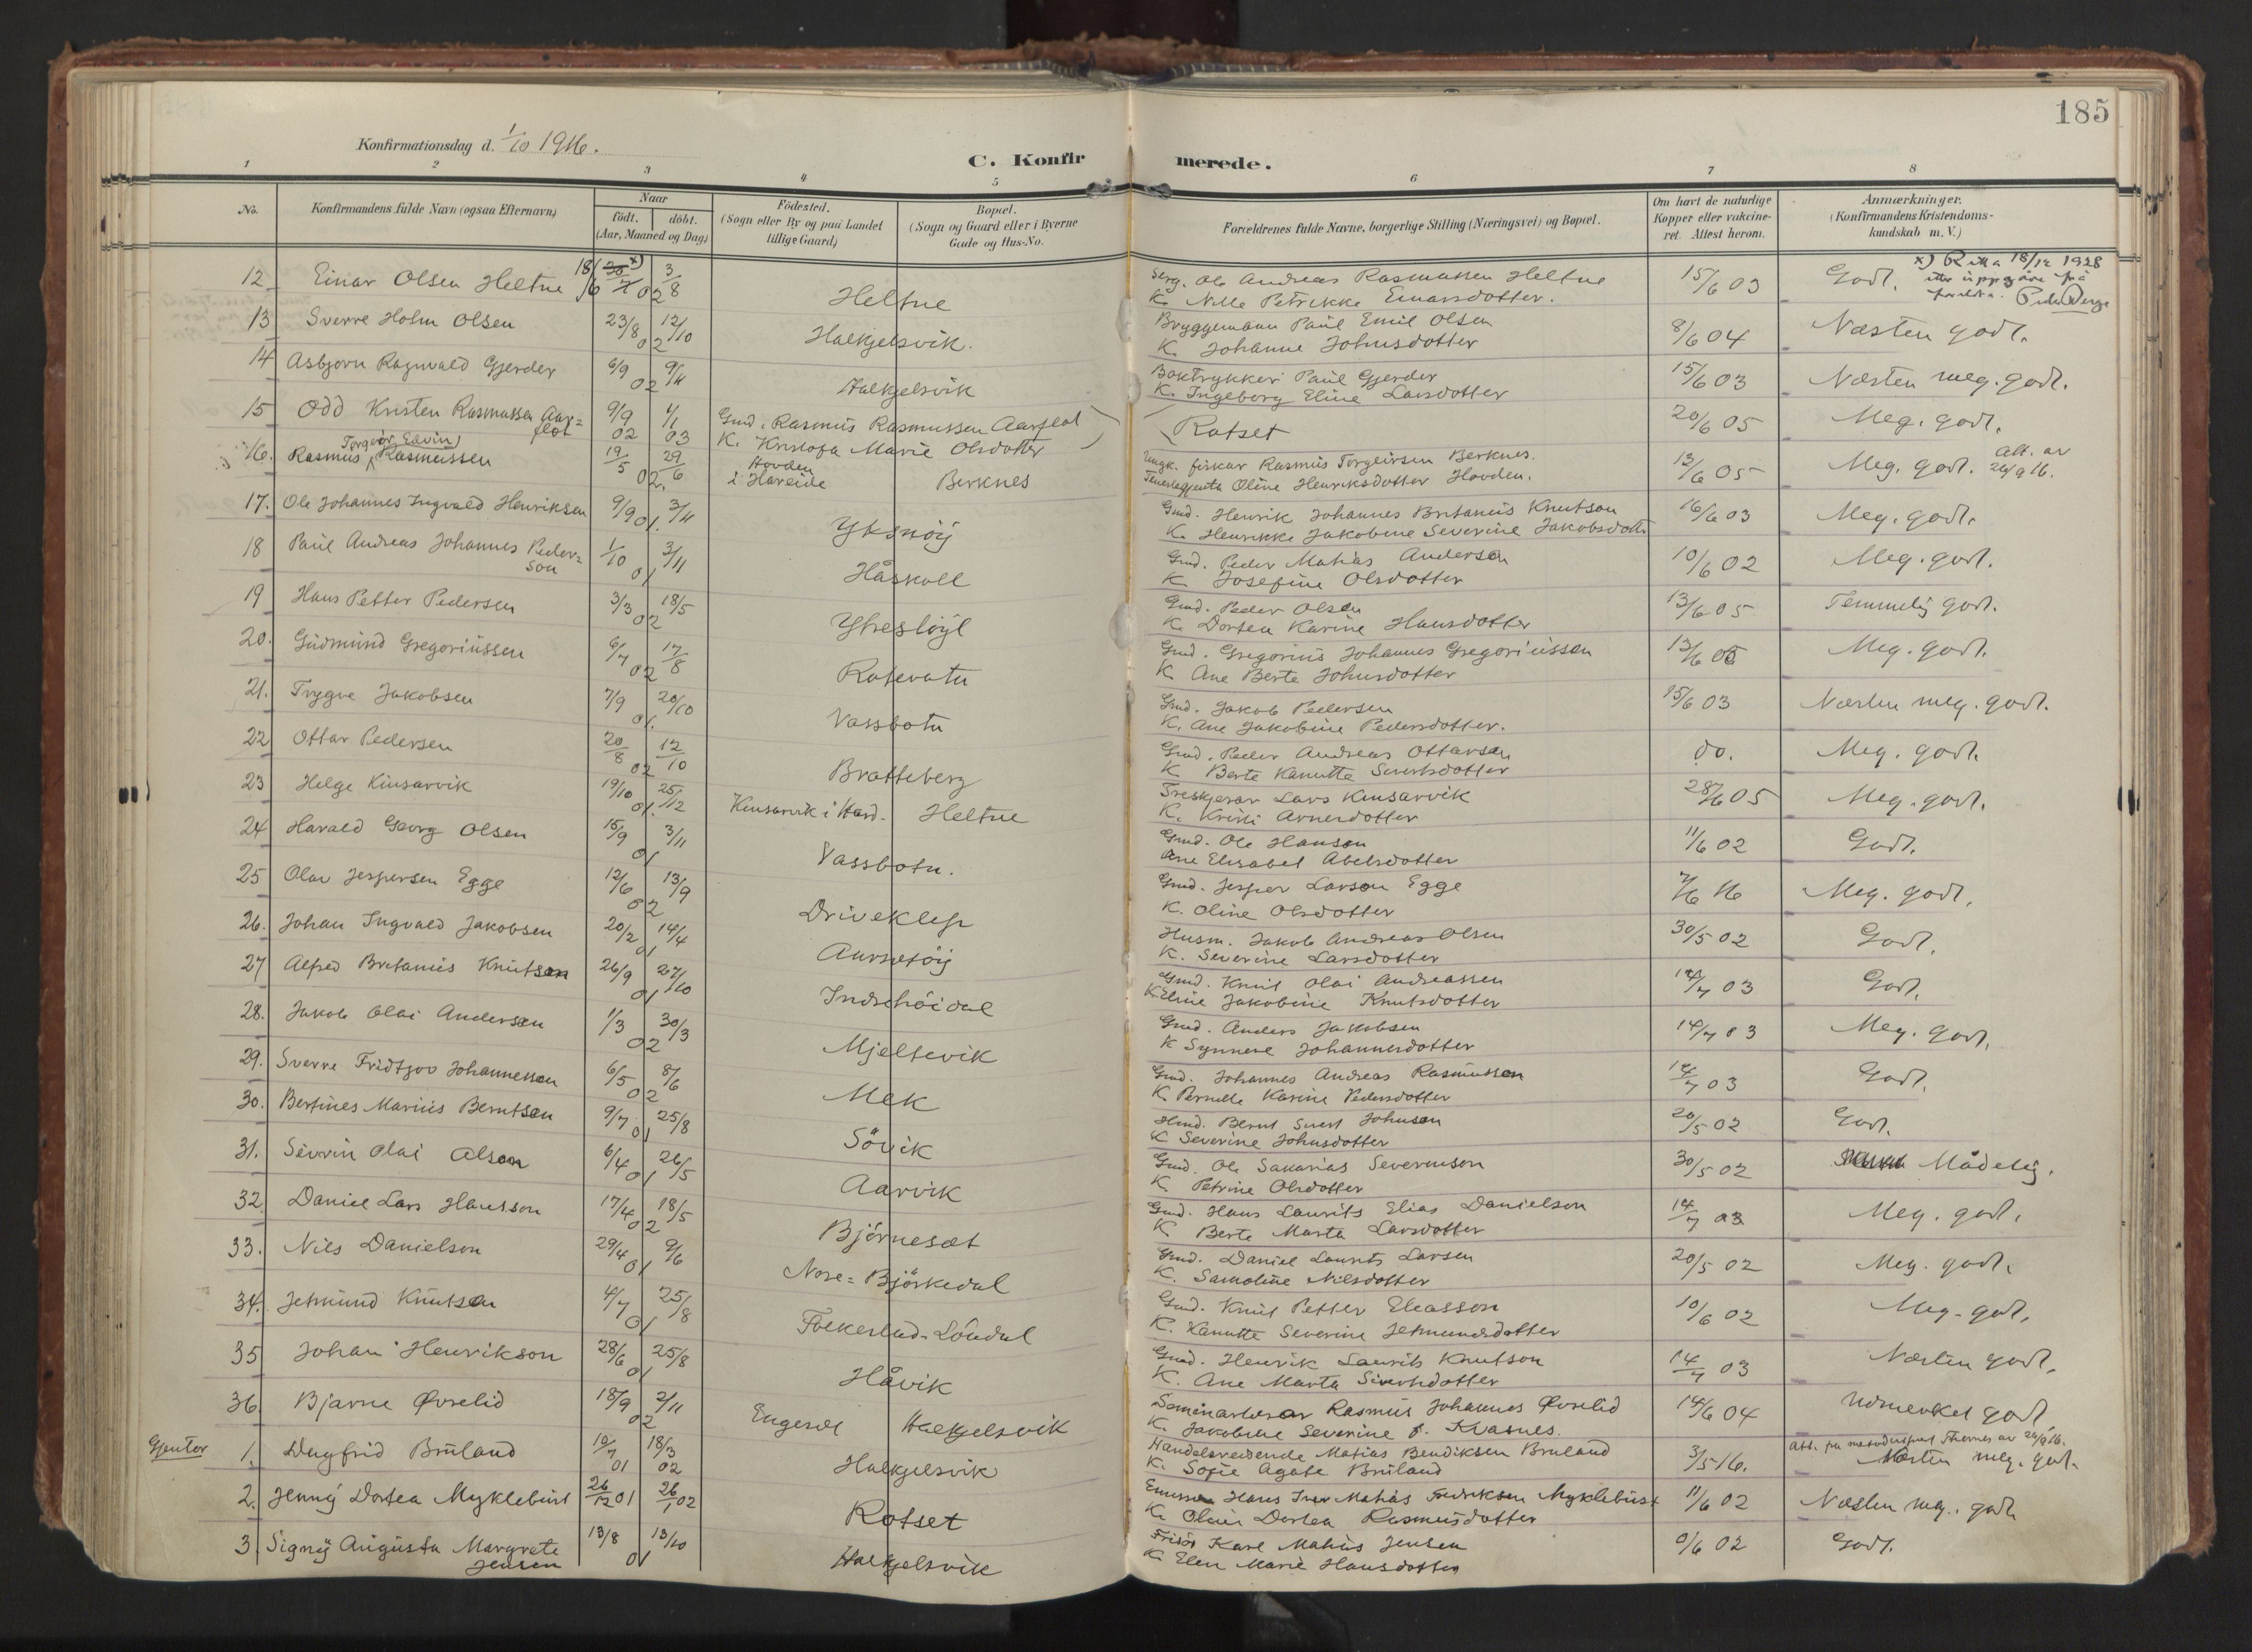 185
Konfirmationsdag d. 1/10 1916.
C. Konfirmerede.
1 2 3 4 5 6 7 8
No. Konfirmandens fulde Navn (ogsaa Efternavn) Naar födt. döbt. (Aar, Maaned og Dag) Födested. (Sogn eller By og paa Landet tillige Gaard) Bopæl. (Sogn og Gaard eller i Byerne Gade og Hus-No. Forældrenes fulde Navne, borgerlige Stilling (Næringsvei) og Bopæl. Om havt de naturlige Kopper eller vakcineret. Attest herom. Anmærkninger. (Konfirmandens Kristendomskundskab m. V.)
12 Einar Olsen Heltne 18/6 3/8 02 Heltne Serg. Ole Andreas Rasmussen Heltne 15/6 03 Godt. x) Retta 18/12 1928
K. Nille Petrikke Einarsdotter. etter uppgåve frå foreldra.
13 Sverre Holm Olsen 23/8 12/10 02 Halkjelsvik. Bryggemann Paul Emil Olsen 8/6 04 Næsten godt.
K. Johanne Johnsdotter
14 Asbjørn Ragnvald Gjerder 6/9 9/11 02 Halkjelsvik Boktrykker Paul Gjerder 15/6 03 Næsten meg. godt.
K. Ingeborg Eline Larsdotter
15 Odd Kristen Rasmussen Aarflot 9/9 02 1/1 03 Gmd. Rasmus Rasmussen Aarflot Rotset 20/6 05 Meg. godt.
K. Kristofa Marie Olsdotter
16. Rasmus Torgeir Edvin Rasmussen 19/5 29/6 02. Hovden i Hareide Berknes Ungk. fiskar Rasmus Torgeirsen Berknes. 13/6 05 Meg. godt. Att. av 26/9 16.
Tenestegjenta Oline Henriksdotter Hovden.
17. Ole Johannes Ingvald Henriksen 9/9 3/11 01. Yksnöy Gmd. Henrik Johannes Britanius Knutson 16/6 03 Meg. godt.
K. Henrikke Jakobine Severine Jakobsdotter
18 Paul Andreas Johannes Pederson 1/10 3/11 01 Håskoll Gmd. Peder Matias Anderson 10/6 02 Meg. godt.
K Josefine Olsdotter
19 Hans Petter Pedersen 3/3 18/5 02 Ytreslöyl Gmd. Peder Olsen 13/6 05 Temmelig godt.
K. Dortea Karine Hansdotter
20. Gudmund Gregoriussen 6/7 17/8 02 Ratevatn Gmd. Gregorius Johannes Gregoriussen 13/6 05 Meg. godt.
K. Ane Berte Johnsdotter
21. Trygve Jakobsen 7/9 20/10 01. Vassbotn Gmd. Jakob Pedersen 15/6 03 Næsten meg. godt.
K. Ane Jakobine Pedersdotter.
22 Ottar Pedersen 20/8 12/10 02 Bratteberg Gmd. Peder Andreas Ottarsen do. Meg. godt.
K Berte Kanutte Sivertsdotter
23 Helge Kinsarvik 19/10 25/12 01. Kinsarvik i Hard. Heltne Treskjerar Lars Kinsarvik 28/6 05 Meg. godt.
K. Kristi Arnesdotter
24 Harald Georg Olsen 15/9 3/11 01 Vassbotn. Gmd. Ole Hanson 11/6 02 Godt.
Ane Elisabet Abelsdotter
25 Olav Jespersen Egge 12/6 13/9 02 Driveklep Gmd. Jesper Larson Egge 7/6 16 Meg. godt.
K. Oline Olsdotter
26. Johan Ingvald Jakobsen 20/2 14/4 01 Aursetöy Husm. Jakob Andreas Olsen 30/5 02 Godt.
K. Severine Larsdotter
27 Alfred Britanius Knutsen 26/9 27/10 01 Indrehöidal Gmd. Knut Olai Andreassen 14/7 03 Godt.
K. Eline Jakobine Knutsdotter
28. Jakob Olai Andersen 1/3 30/3 02 Mjeltevik Gmd. Anders Jakobsen 14/7 03 Meg. godt.
K Synneve Johannesdotter
29. Sverre Fridtjov Johannessen 6/5 8/6 02 Mek Gmd. Johannes Andreas Rasmussen 14/7 03 Godt.
K. Pernille Karine Pedersdotter
30. Bertines Marius Berntsen 9/7 25/8 01 Sövik Gmd. Bernt Sivert Johnsen 20/5 02 Godt.
K Severine Johnsdotter
31. Sivrin Olai Olson 6/4 26/5 01 Aarvik Gmd. Ole Sakarias Severinson 30/5 02 Mådelig.
K. Petrine Olsdotter
32 Daniel Lars Hansson 17/4 18/5 02 Björnesæt Gmd. Hans Laurits Elias Danielson 14/7 03 Meg. godt.
K Berte Marta Larsdotter
33. Nils Danielson 29/4 9/6 01 Nore-Björkedal Gmd. Daniel Laurits Larsen 20/5 02 Meg. godt.
K. Samoline Nilsdotter
34. Jetmund Knutsen 4/7 25/8 01 Folkestad-Löndal Gmd. Knut Petter Eliasson 10/6 02 Meg. godt.
K. Kanutte Severine Jetmundsdotter
35 Johan Henrikson 28/6 25/8 01 Håvik Gmd. Henrik Laurits Knutson 14/7 03 Næsten godt.
K. Ane Marta Sivertsdotter
36 Bjarne Øvrelid 18/9 2/11 02 Engerdl Halkjelsvik Seminarlærar Rasmus Johannes Øvrelid 14/6 04 Udmerket godt.
K. Jakobine Severine f. Kvasnes.
Gjentor 1. Dagfrid Bruland 10/7 01 18/3 02 Halkjelsvik Handelsreisende Matias Bendiksen Bruland 3/5 16. Att. fra metodistprest Thernes av 24/9 16. Næsten meg. godt.
K. Sofie Agate Bruland
2. Jenny Dortea Myklebust 26/12 01 26/1 02 Rotset Hans Iver Matias Fredriksen Myklebust 11/6 02 Næsten meg. godt
K. Olave Dortea Rasmusdotter
3. Signy Augusta Margrete Jensen 13/8 13/10 01 Halkjelsvik Frisör Karl Matias Jensen 9/6 02 Godt.
K. Elen Marie Hansdotter